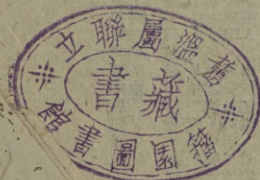 舊溫屬聯立
藏書
籀園圖書館